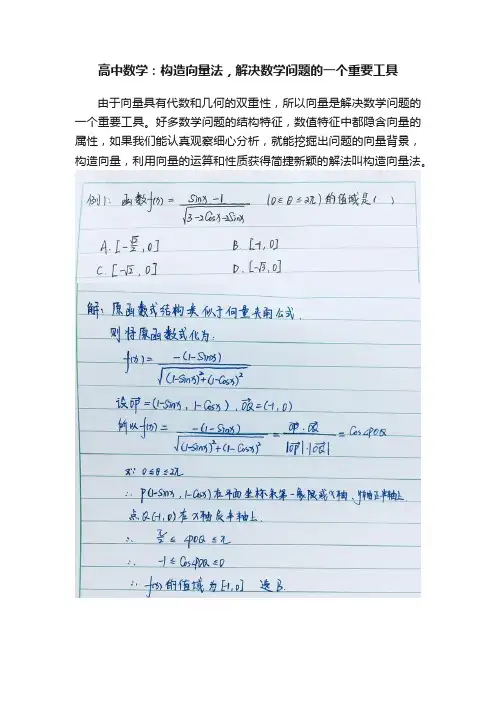 高中数学：构造向量法，解决数学问题的一个重要工具
由于向量具有代数和几何的双重性，所以向量是解决数学问题的
一个重要工具。好多数学问题的结构特征，数值特征中都隐含向量的
属性，如果我们能认真观察细心分析，就能挖掘出问题的向量背景，
构造向量，利用向量的运算和性质获得简捷新颖的解法叫构造向量法。
例1: 函数f(x) = (Sinx-1)/√(3-2Cosx-2Sinx) (0≤θ≤2π)的值域是( )
A. [-√2/2, 0] B. [-1, 0]
C. [-√2, 0] D. [-√3, 0]
解: 原函数式结构类似于向量夹角公式.
则将原函数式化为:
f(x) = -(1-Sinx)/√((1-Sinx)²+(1-Cosx)²)
设OP=(1-Sinx, 1-Cosx), OQ=(-1, 0)
所以f(x) = -(1-Sinx)/√((1-Sinx)²+(1-Cosx)²) = OP·OQ/|OP|·|OQ| = Cos∠POQ
又: 0≤θ≤2π
∴ P(1-Sinx, 1-Cosx)在平面坐标系第一象限或x轴、y轴正半轴上
点Q(-1, 0)在x轴负半轴上.
∴ π/2 ≤ ∠POQ ≤ π
∴ -1 ≤ Cos∠POQ ≤ 0
∴ f(x)的值域为[-1, 0] 选B.